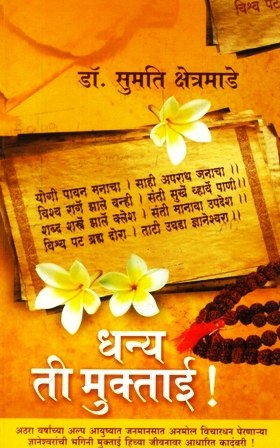 विश्व पट
डॉ. सुमति क्षेत्रमाडे
योगी पावन मनाचा । साही अपराध जनाचा ।।
विश्व रागें झाले वन्ही । संती सुखें व्हावें पाणी ।।
शब्द शस्त्रें झालें क्लेश । संती मानावा उपदेश ।
विश्व पट ब्रह्म दोरा । ताटी उघडा ज्ञानेश्वरा ।
धन्य
ती मुक्ताई !
अठरा वर्षांच्या अल्प आयुष्यात जनमानसात अनमोल विचारधन पेरणाऱ्या
ज्ञानेश्वरांची भगिनी मुक्ताई हिच्या जीवनावर आधारित कादंबरी !